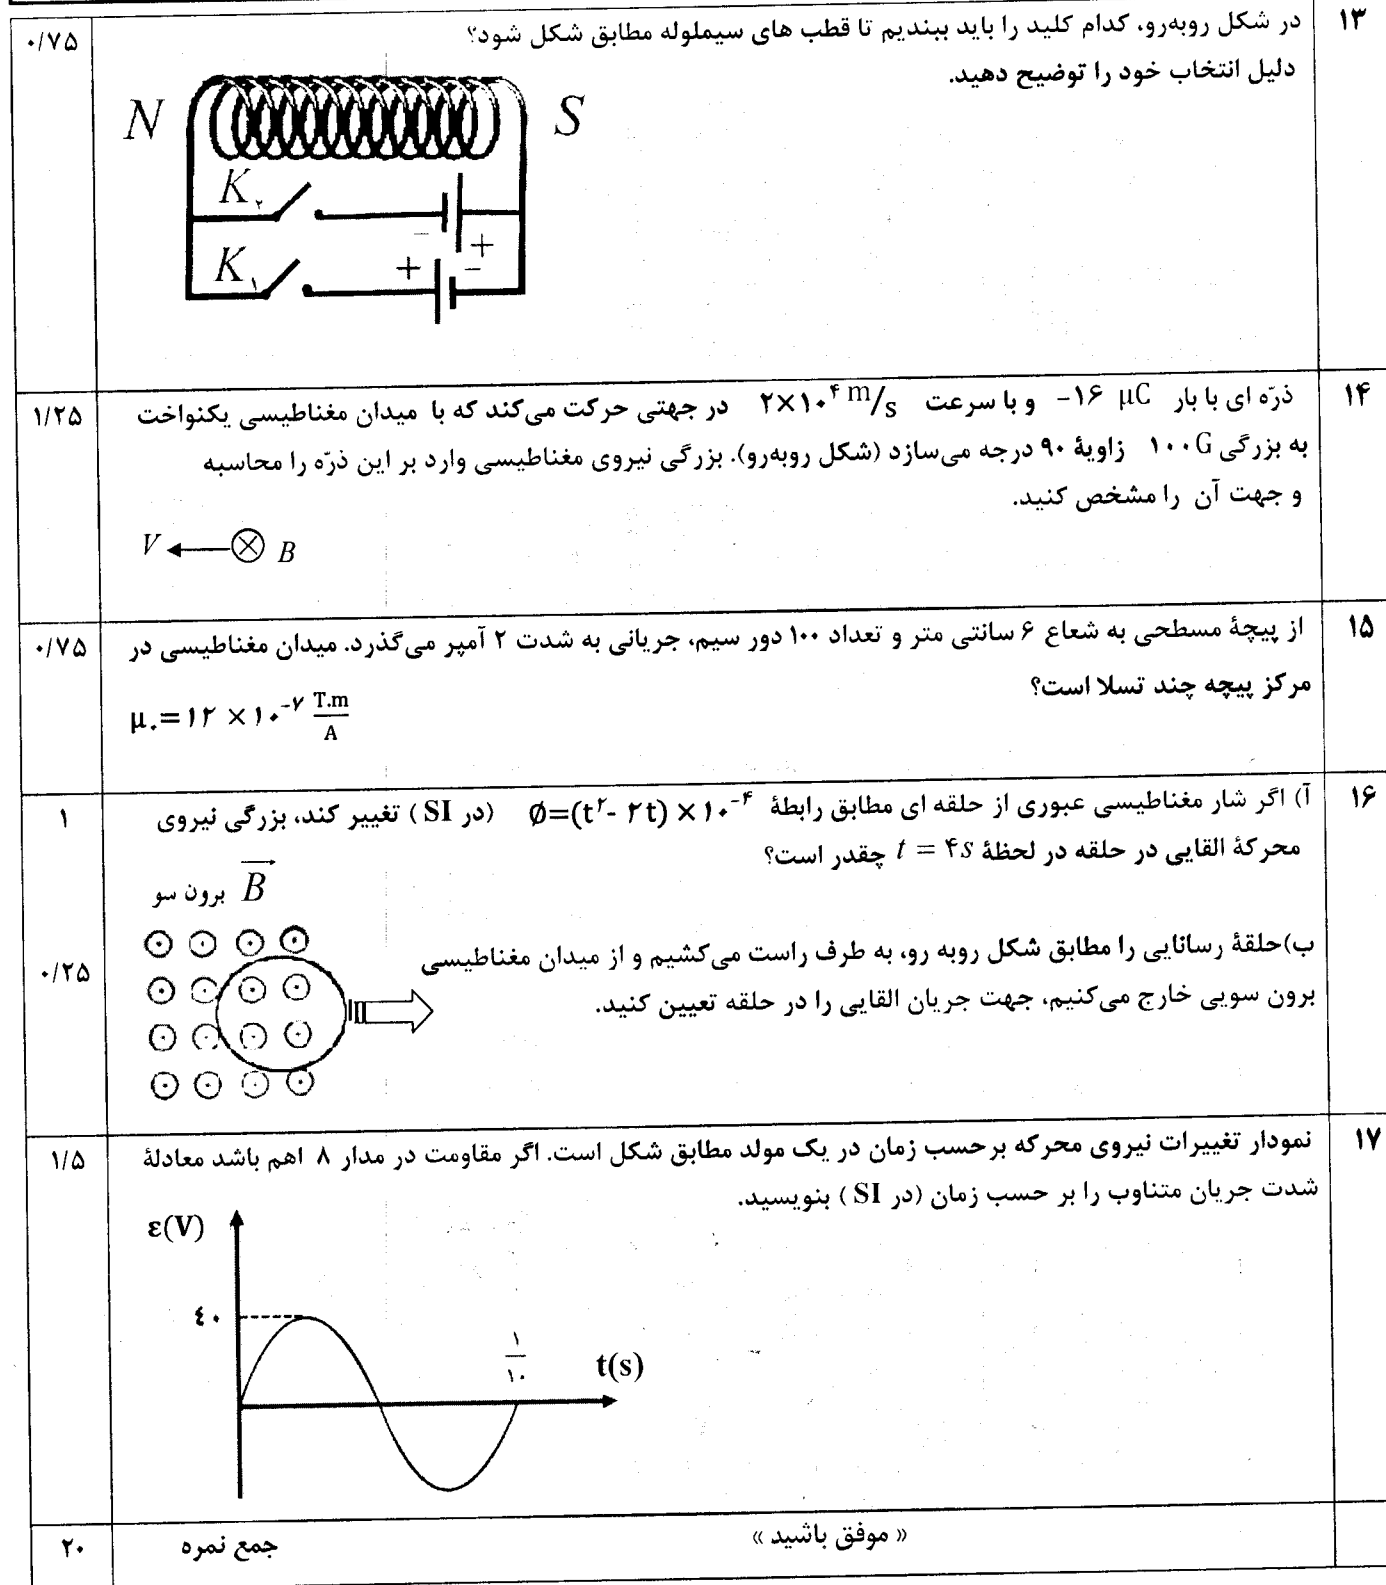 ۱۳
در شکل روبه‌رو، کدام کلید را باید ببندیم تا قطب های سیملوله مطابق شکل شود؟
۰/۷۵
دلیل انتخاب خود را توضیح دهید.
N S
K۲
- +
K۱
+ -
۱۴
ذرّه ای با بار ‎-۱۶ µC‎ و با سرعت ‎۲×۱۰⁴ m/s‎ در جهتی حرکت می‌کند که با میدان مغناطیسی یکنواخت
۱/۲۵
به بزرگی ۱۰۰G زاویهٔ ۹۰ درجه می‌سازد (شکل روبه‌رو). بزرگی نیروی مغناطیسی وارد بر این ذرّه را محاسبه
و جهت آن را مشخص کنید.
V B
۱۵
از پیچهٔ مسطحی به شعاع ۶ سانتی متر و تعداد ۱۰۰ دور سیم، جریانی به شدت ۲ آمپر می‌گذرد. میدان مغناطیسی در
۰/۷۵
مرکز پیچه چند تسلا است؟
µ۰=۱۲ ×۱۰⁻⁷ T.m/A
۱۶
آ) اگر شار مغناطیسی عبوری از حلقه ای مطابق رابطهٔ ‎Ø=(t²- ۲t)×۱۰⁻⁴‎ (در SI) تغییر کند، بزرگی نیروی
۱
محرکهٔ القایی در حلقه در لحظهٔ ‎t = ۴s‎ چقدر است؟
B برون سو
ب)حلقهٔ رسانایی را مطابق شکل روبه رو، به طرف راست می‌کشیم و از میدان مغناطیسی
۰/۲۵
برون سویی خارج می‌کنیم، جهت جریان القایی را در حلقه تعیین کنید.
۱۷
نمودار تغییرات نیروی محرکه برحسب زمان در یک مولد مطابق شکل است. اگر مقاومت در مدار ۸ اهم باشد معادلهٔ
۱/۵
شدت جریان متناوب را بر حسب زمان (در SI) بنویسید.
ε(V)
٤٠
۱/۱۰
t(s)
« موفق باشید »
جمع نمره
۲۰